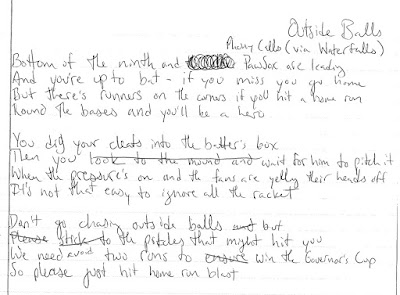 Outside Balls
(via Waterfalls)
Bottom of the ninth and PawSox are leading
And you're up to bat - if you miss you go home
But there's runners on the corners if you hit a home run
Round the bases and you'll be a hero
You dig your cleats into the batter's box
Then you look to the mound and wait for him to pitch it
When the pressure's on and the fans are yelling their heads off
It's not that easy to ignore all the racket
Don't go chasing outside balls and but
Please stick to the pitches that might hit you
avoid
We need two runs to ensure win the Governor's Cup
So please just hit home run blast